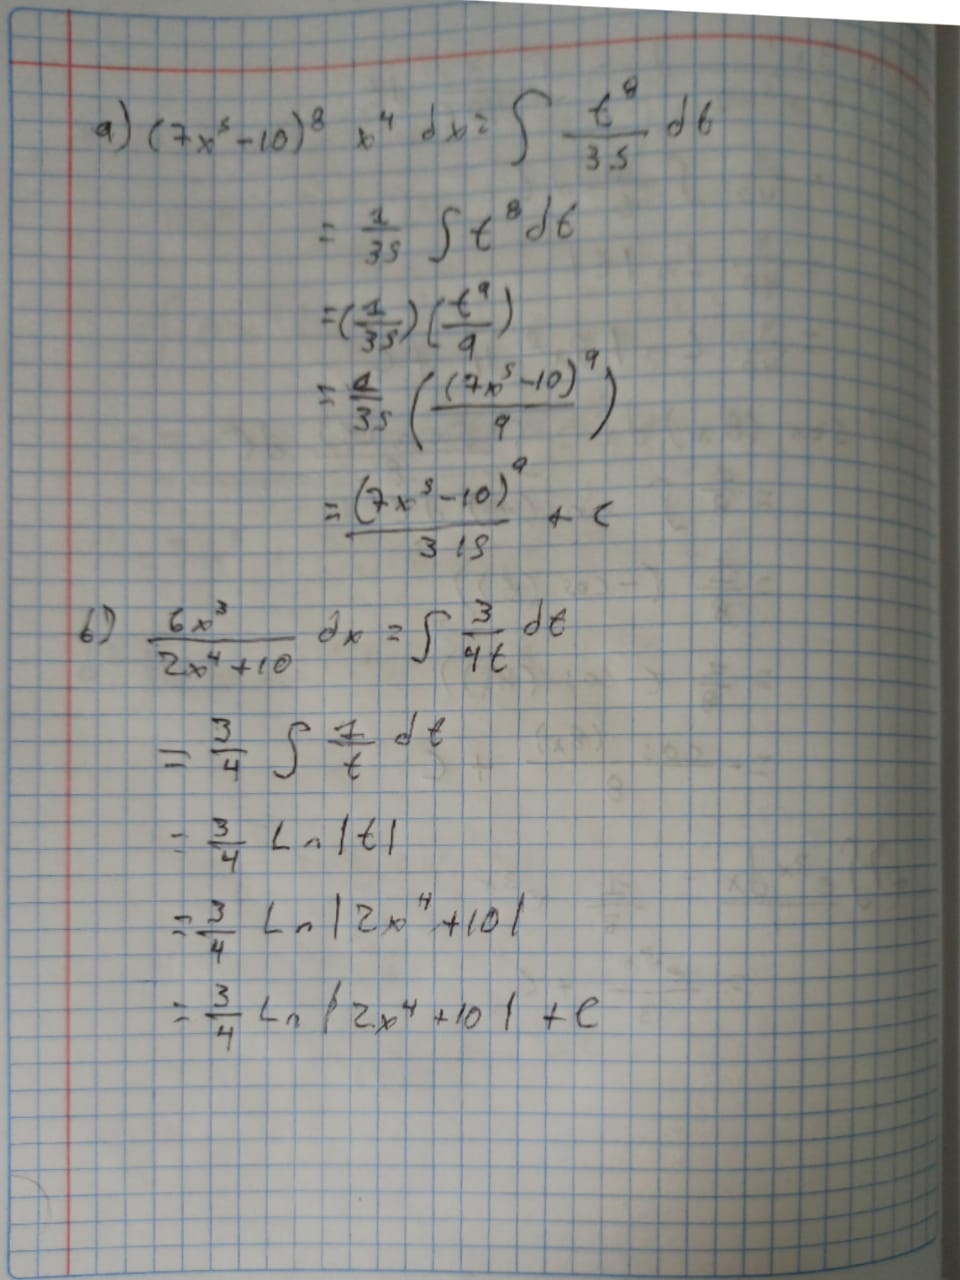 a) (7x⁵-10)⁸ x⁴ dx = ∫ t⁸/35 dt
= 1/35 ∫ t⁸ dt
= (1/35) (t⁹/9)
= 1/35 ((7x⁵-10)⁹/9)
= (7x⁵-10)⁹/315 + C
b) 6x³/2x⁴+10 dx = ∫ 3/4t dt
= 3/4 ∫ 1/t dt
= 3/4 Ln|t|
= 3/4 Ln|2x⁴+10|
= 3/4 Ln|2x⁴+10| + C